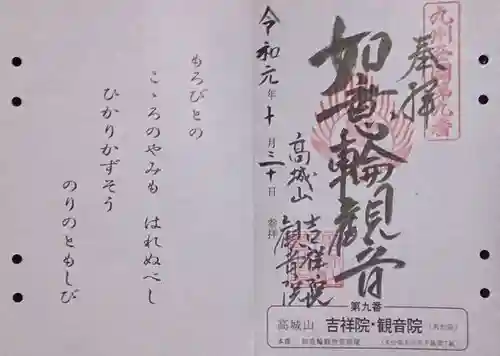 奉拝
如意輪観音
高城山
吉祥院
観音院
令和元年十月三十日 参拝
第九番
高城山 吉祥院・観音院
もろびとの
こゝろのやみも はれぬべし
ひかりかずそう
のりのともしび